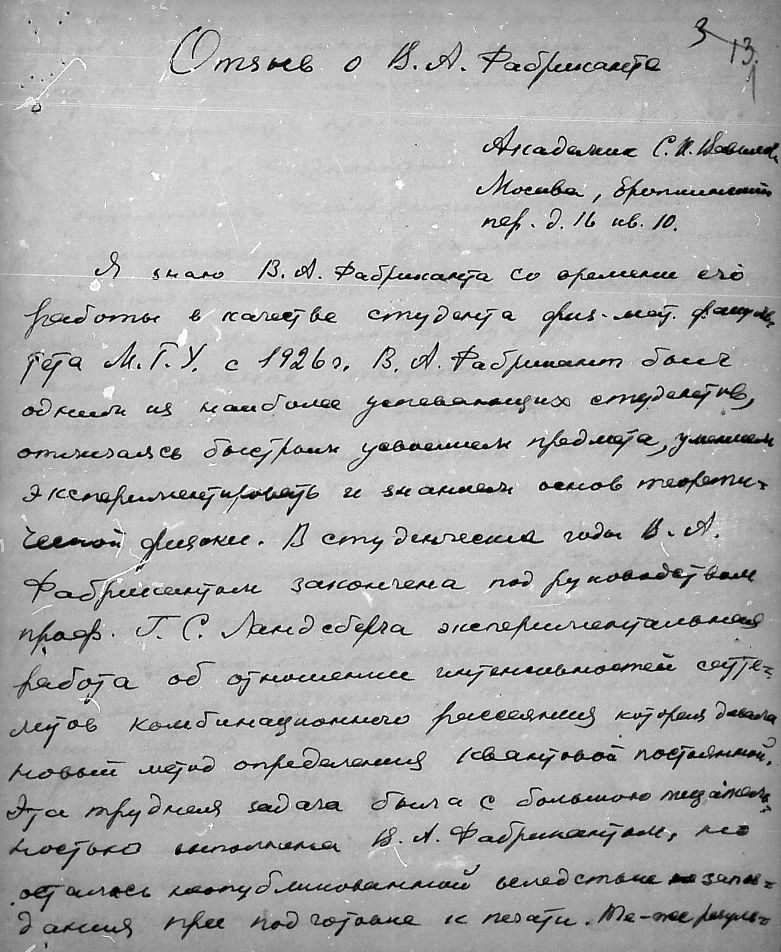 3
13
Отзыв о В. А. Фабриканте
Академик С. И. Вавилов
Москва, Еропкинский
пер. д. 16 кв. 10.
Я знаю В. А. Фабриканта со времени его
работы в качестве студента физ-мат. факуль-
тета М.Г.У. с 1926 г. В. А. Фабрикант был
одним из наиболее успевающих студентов,
отличаясь быстрым усвоением предмета, умением
экспериментировать и знанием основ теорети-
ческой физики. В студенческие годы В. А.
Фабрикантом закончена под руководством
проф. Г. С. Ландсберга экспериментальная
работа об отношении интенсивностей сател-
литов комбинационного рассеяния которая давала
новый метод определения квантовой постоянной.
Эта трудная задача была с большою тщатель-
ностью выполнена В. А. Фабрикантом, но
осталась неопубликованной вследствие запоз-
дания при подготовке к печати. Те-же резуль-